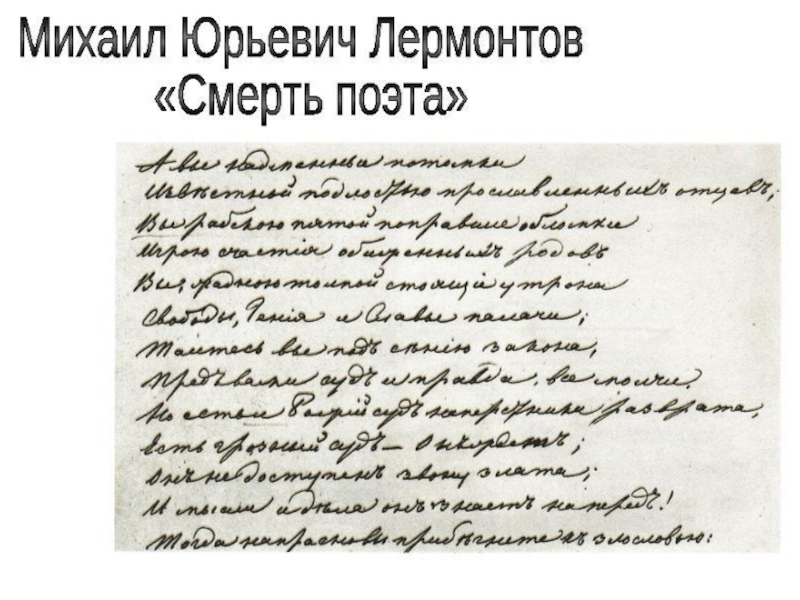 Михаил Юрьевич Лермонтов
«Смерть поэта»
А вы надменные потомки
Извѣстной подлостью прославленныхъ отцовъ,
Вы рабскою пятой поправшие обломки
Игрою счастія обиженныхъ родовъ
Вы, жадною толпой стоящіе у трона
Свободы, Генія и Славы палачи;
Таитесь вы подъ сѣнію закона,
Предъ вами судъ и правда, все молчи.
Но есть и Божій судъ наперстники разврата,
Есть грозный судъ— Онъ ждетъ;
Онъ не доступенъ звону злата;
И мысли и дѣла онъ знаетъ напередъ!
Тогда напрасно вы прибѣгнете къ злословью: